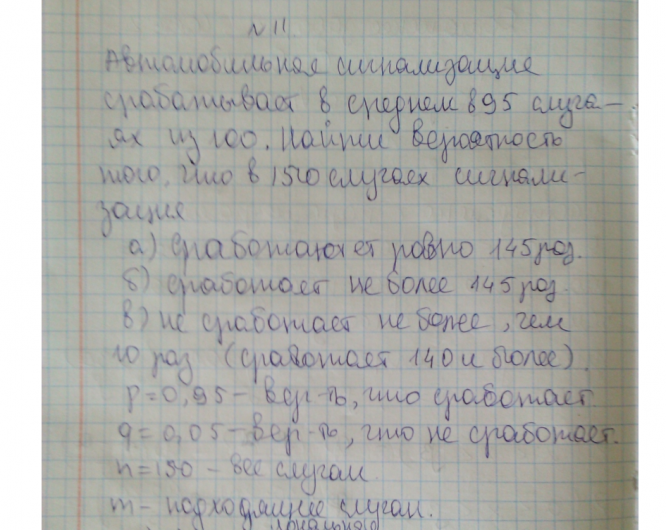 № 11
Автомобильная сигнализация
срабатывает в среднем в 95 случа-
ях из 100. Найти вероятность
того, что в 150 случаях сигнали-
зация
а) сработает равно 145 раз.
б) сработает не более 145 раз.
в) не сработает не более, чем
10 раз (сработает 140 и более).
p=0,95 - вер-ть, что сработает
q=0,05 - вер-ть, что не сработает.
n=150 - все случаи
m - подходящие случаи.